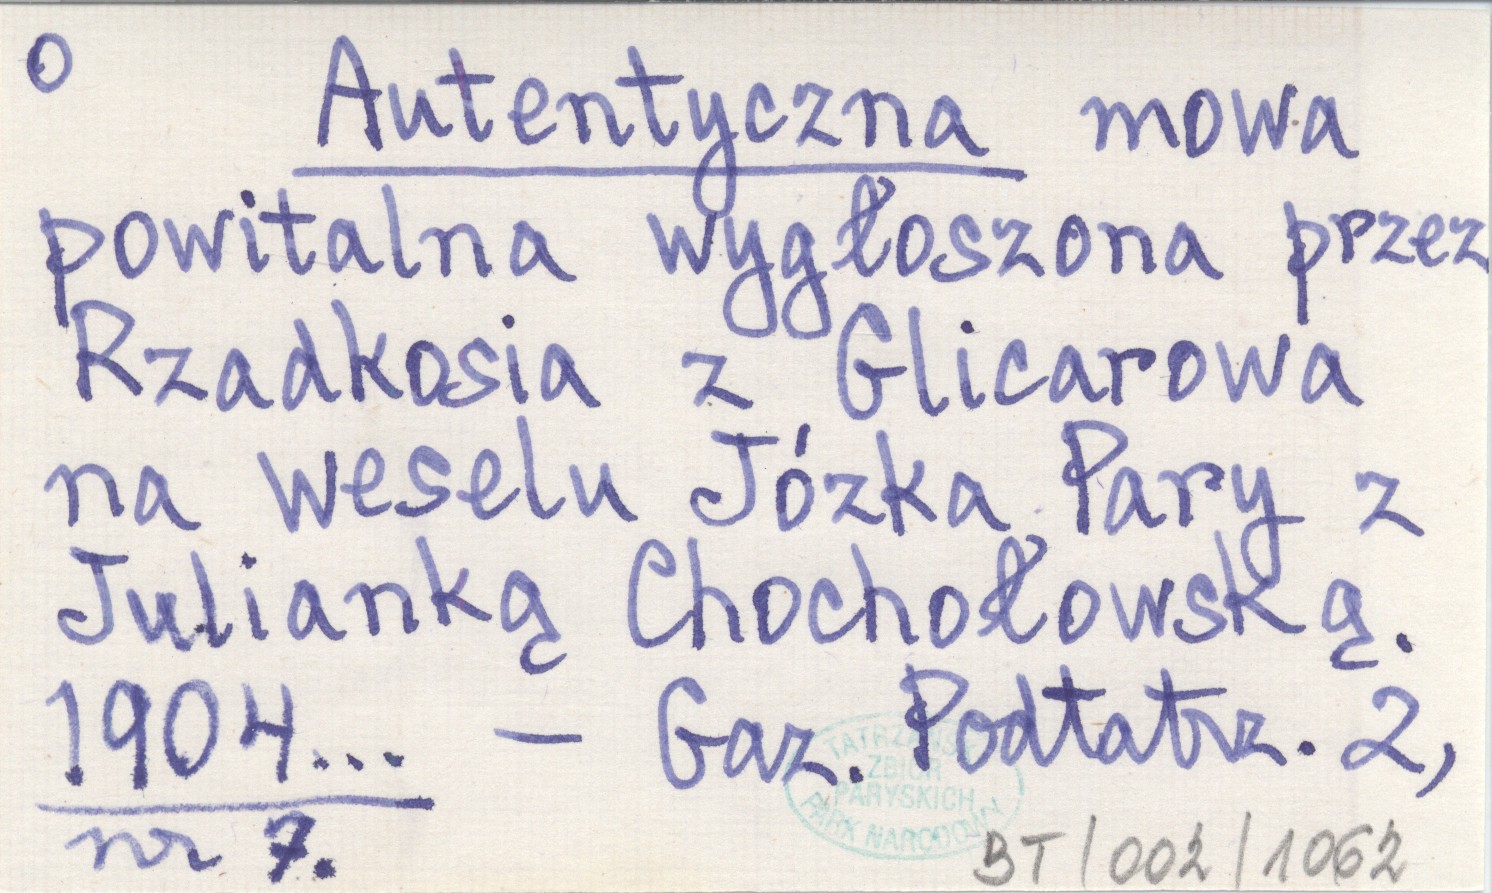 O Autentyczna mowa
powitalna wygłoszona przez
Rzadkosia z Glicarowa
na weselu Józka Pary z
Julianką Chochołowską.
1904... – Gaz. Podtatrz. 2,
nr 7.
TATRZAŃSKI
ZBIÓR
PARYSKICH
PARK NARODOWY
BT/002/1062